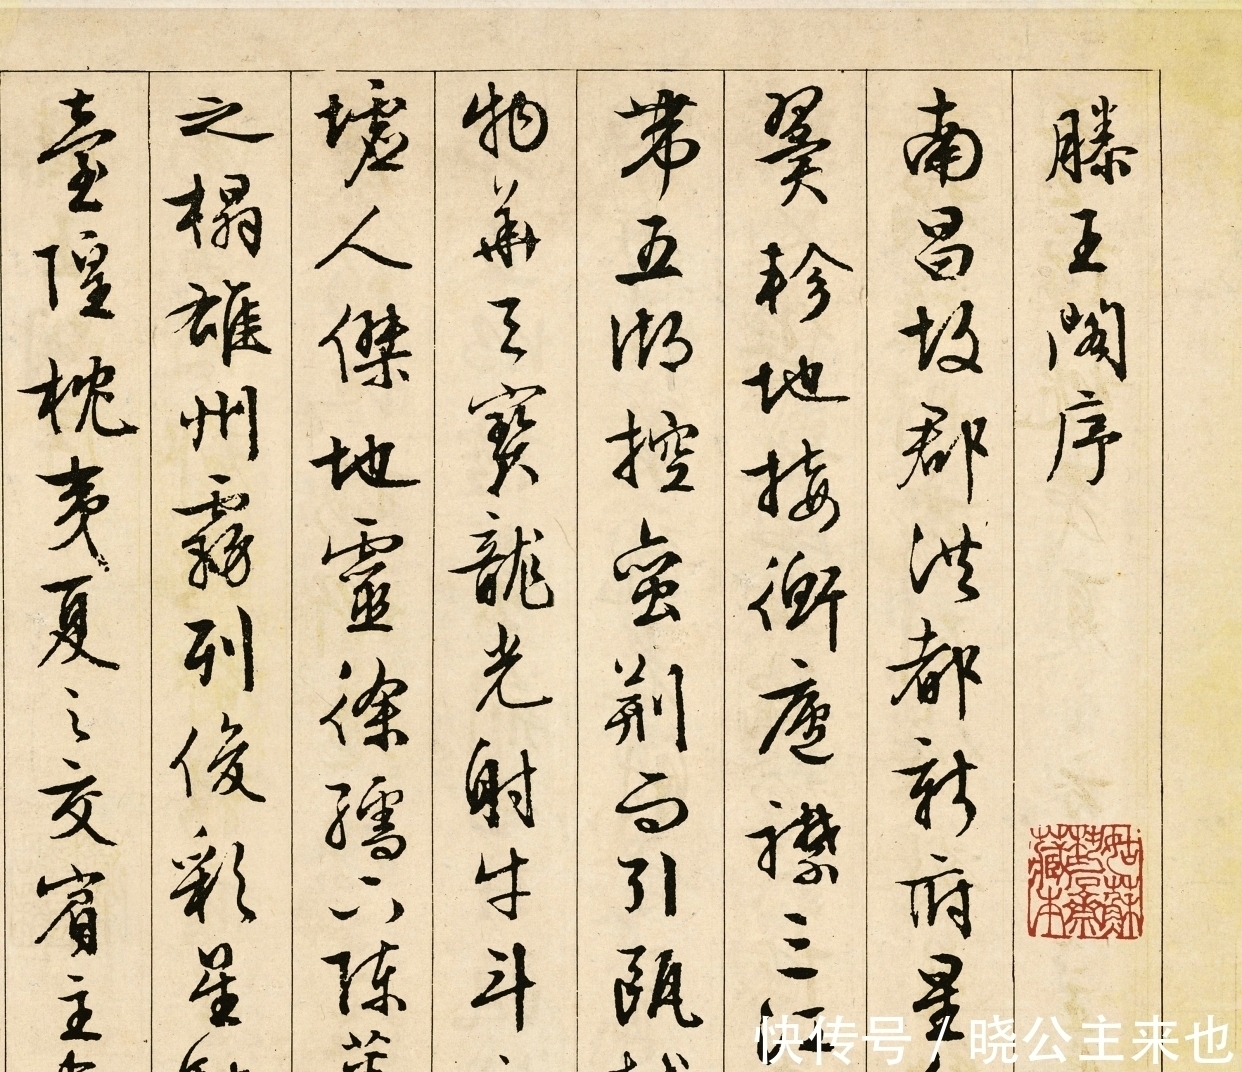 滕王閣序
南昌故郡洪都新府星
翼軫地接衡廬襟三江
帶五湖控蠻荊而引甌越
物華天寶龍光射牛斗
墟人傑地靈徐孺下陳蕃
之榻雄州霧列俊彩星馳
臺隍枕夷夏之交賓主盡
姑蘇
藏本
快传号 / 晓公主来也